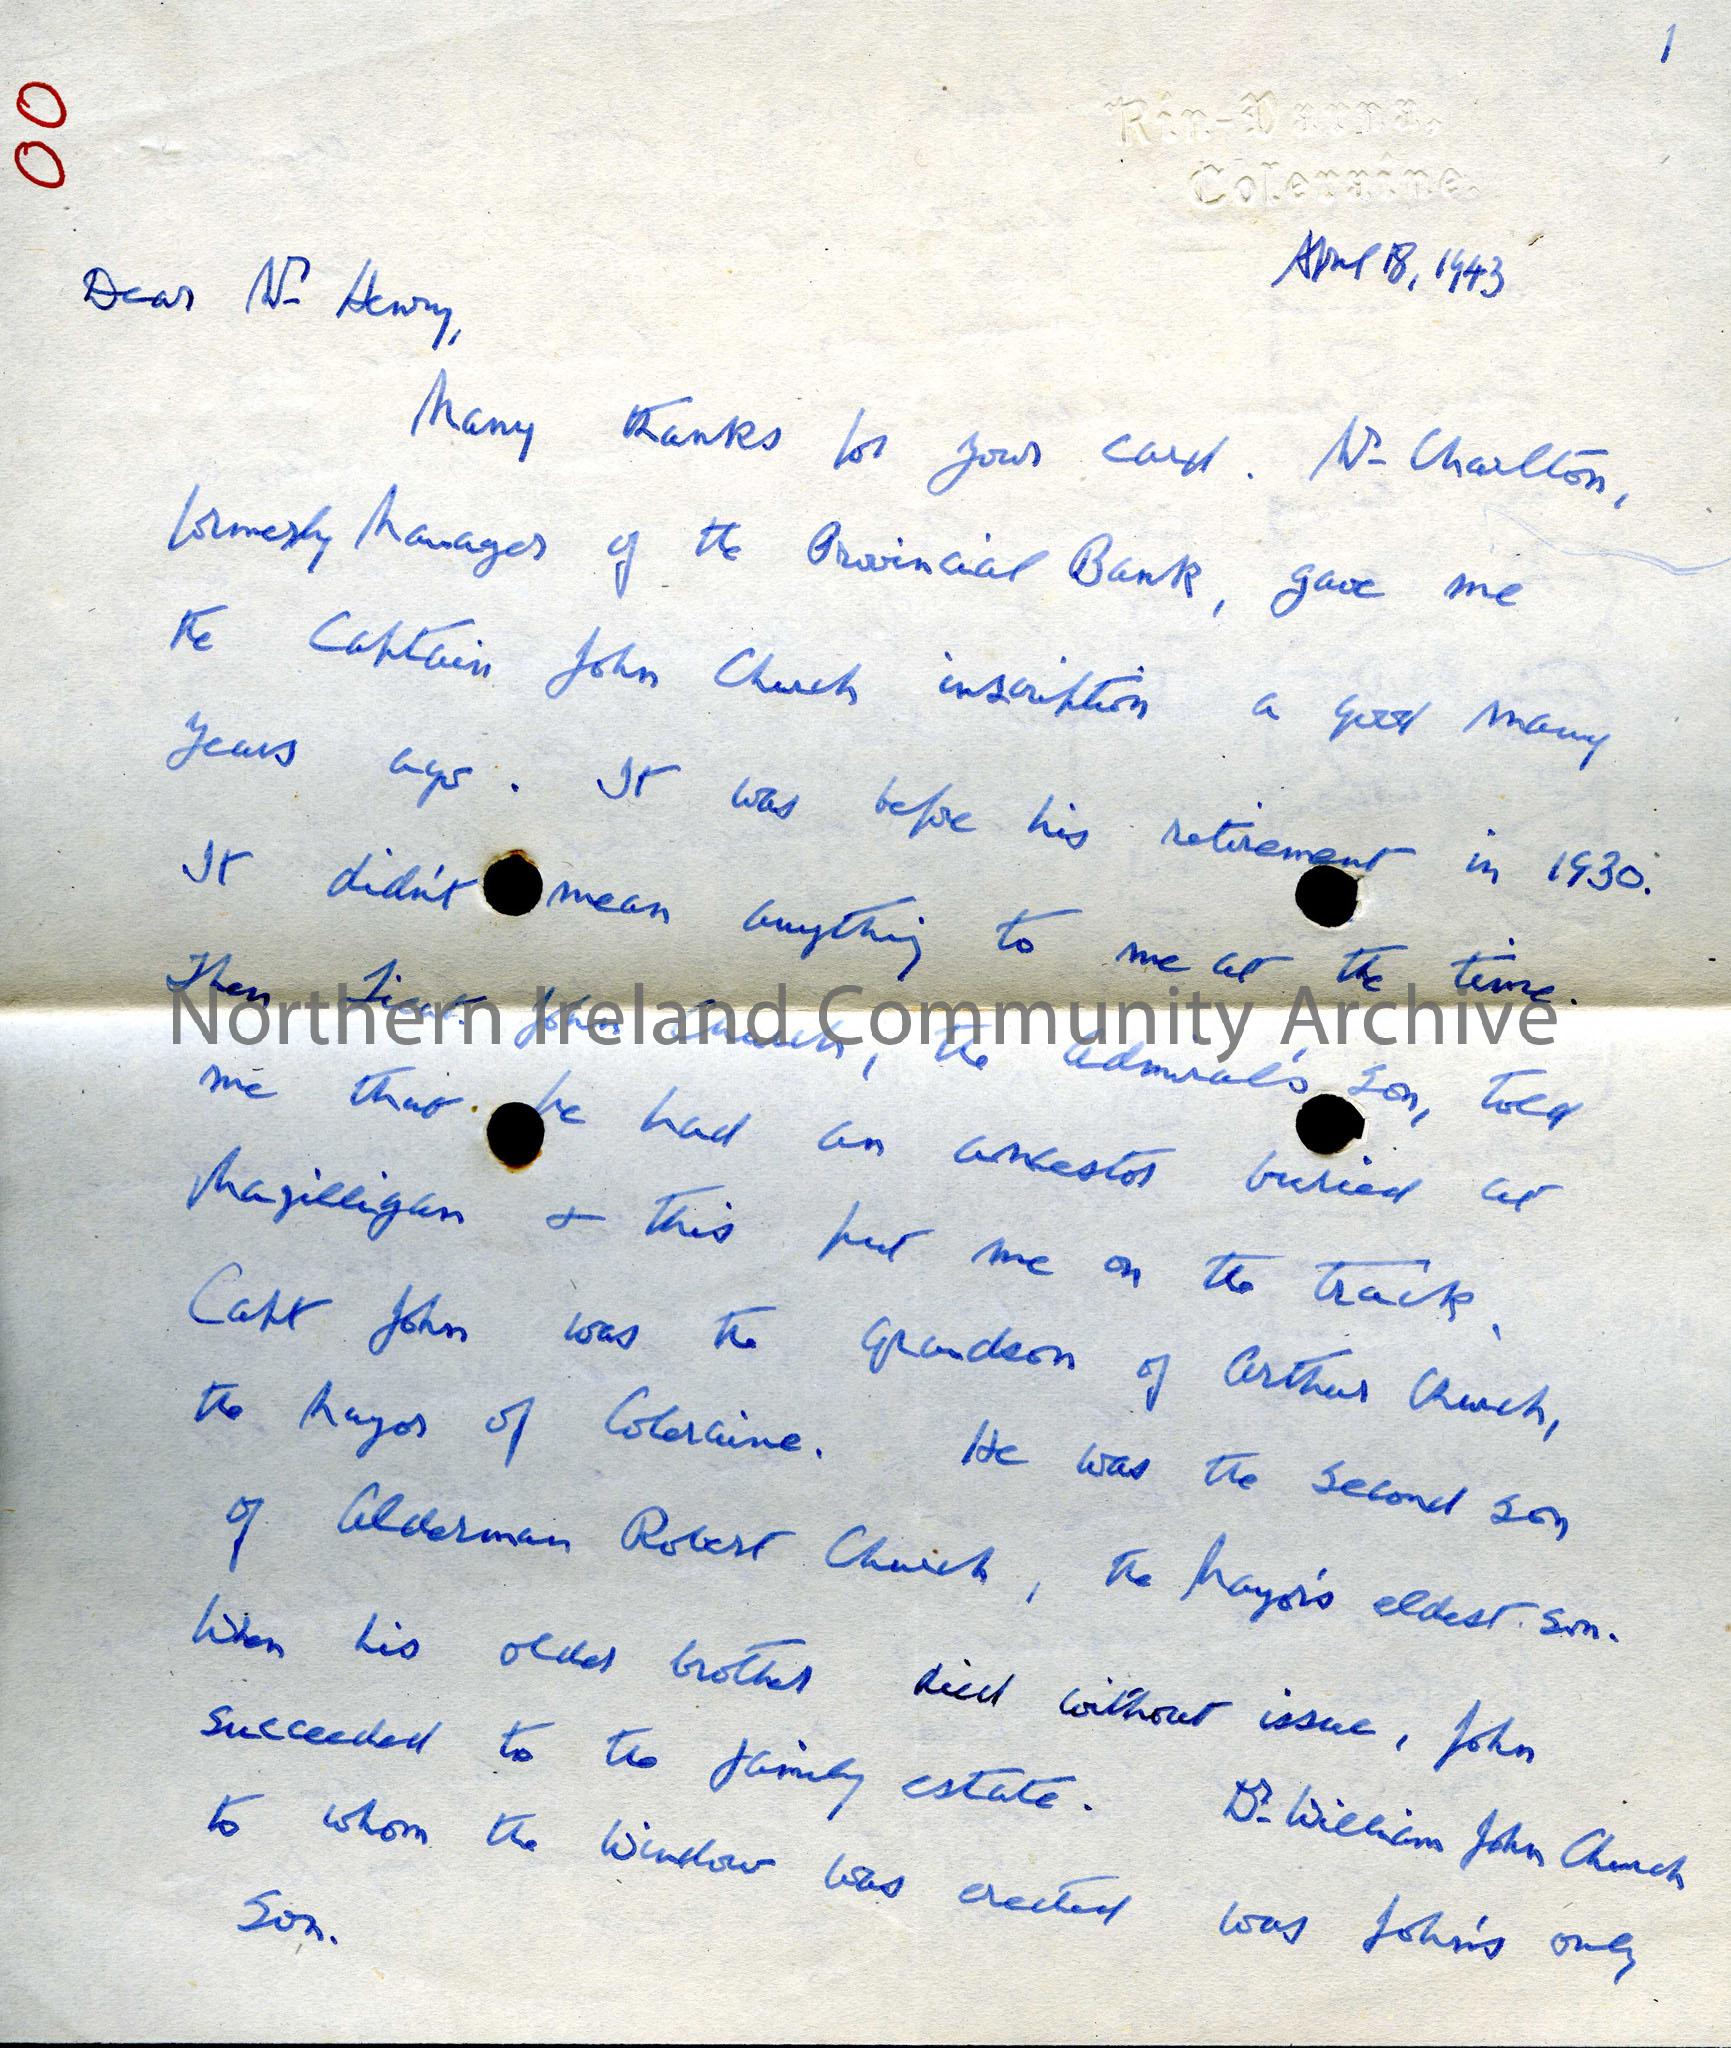 1
00
Rin-Varna,
Coleraine.
April 18, 1943
Dear Mr Henry,
Many thanks for your card. Mr Charlton,
formerly Manager of the Provincial Bank, gave me
the Captain John Church inscription a good many
years ago. It was before his retirement in 1930.
It didn't mean anything to me at the time.
Then Lieut. John Church, the Admiral's son, told
Northern Ireland Community Archive
me that he had an ancestor buried at
Magilligan & this put me on the track.
Capt John was the grandson of Arthur Church,
the Mayor of Coleraine. He was the second son
of Alderman Robert Church, the Mayor's eldest son.
When his older brother died without issue, John
succeeded to the family estate. Dr William John Church
to whom the window was erected was John's only
son.